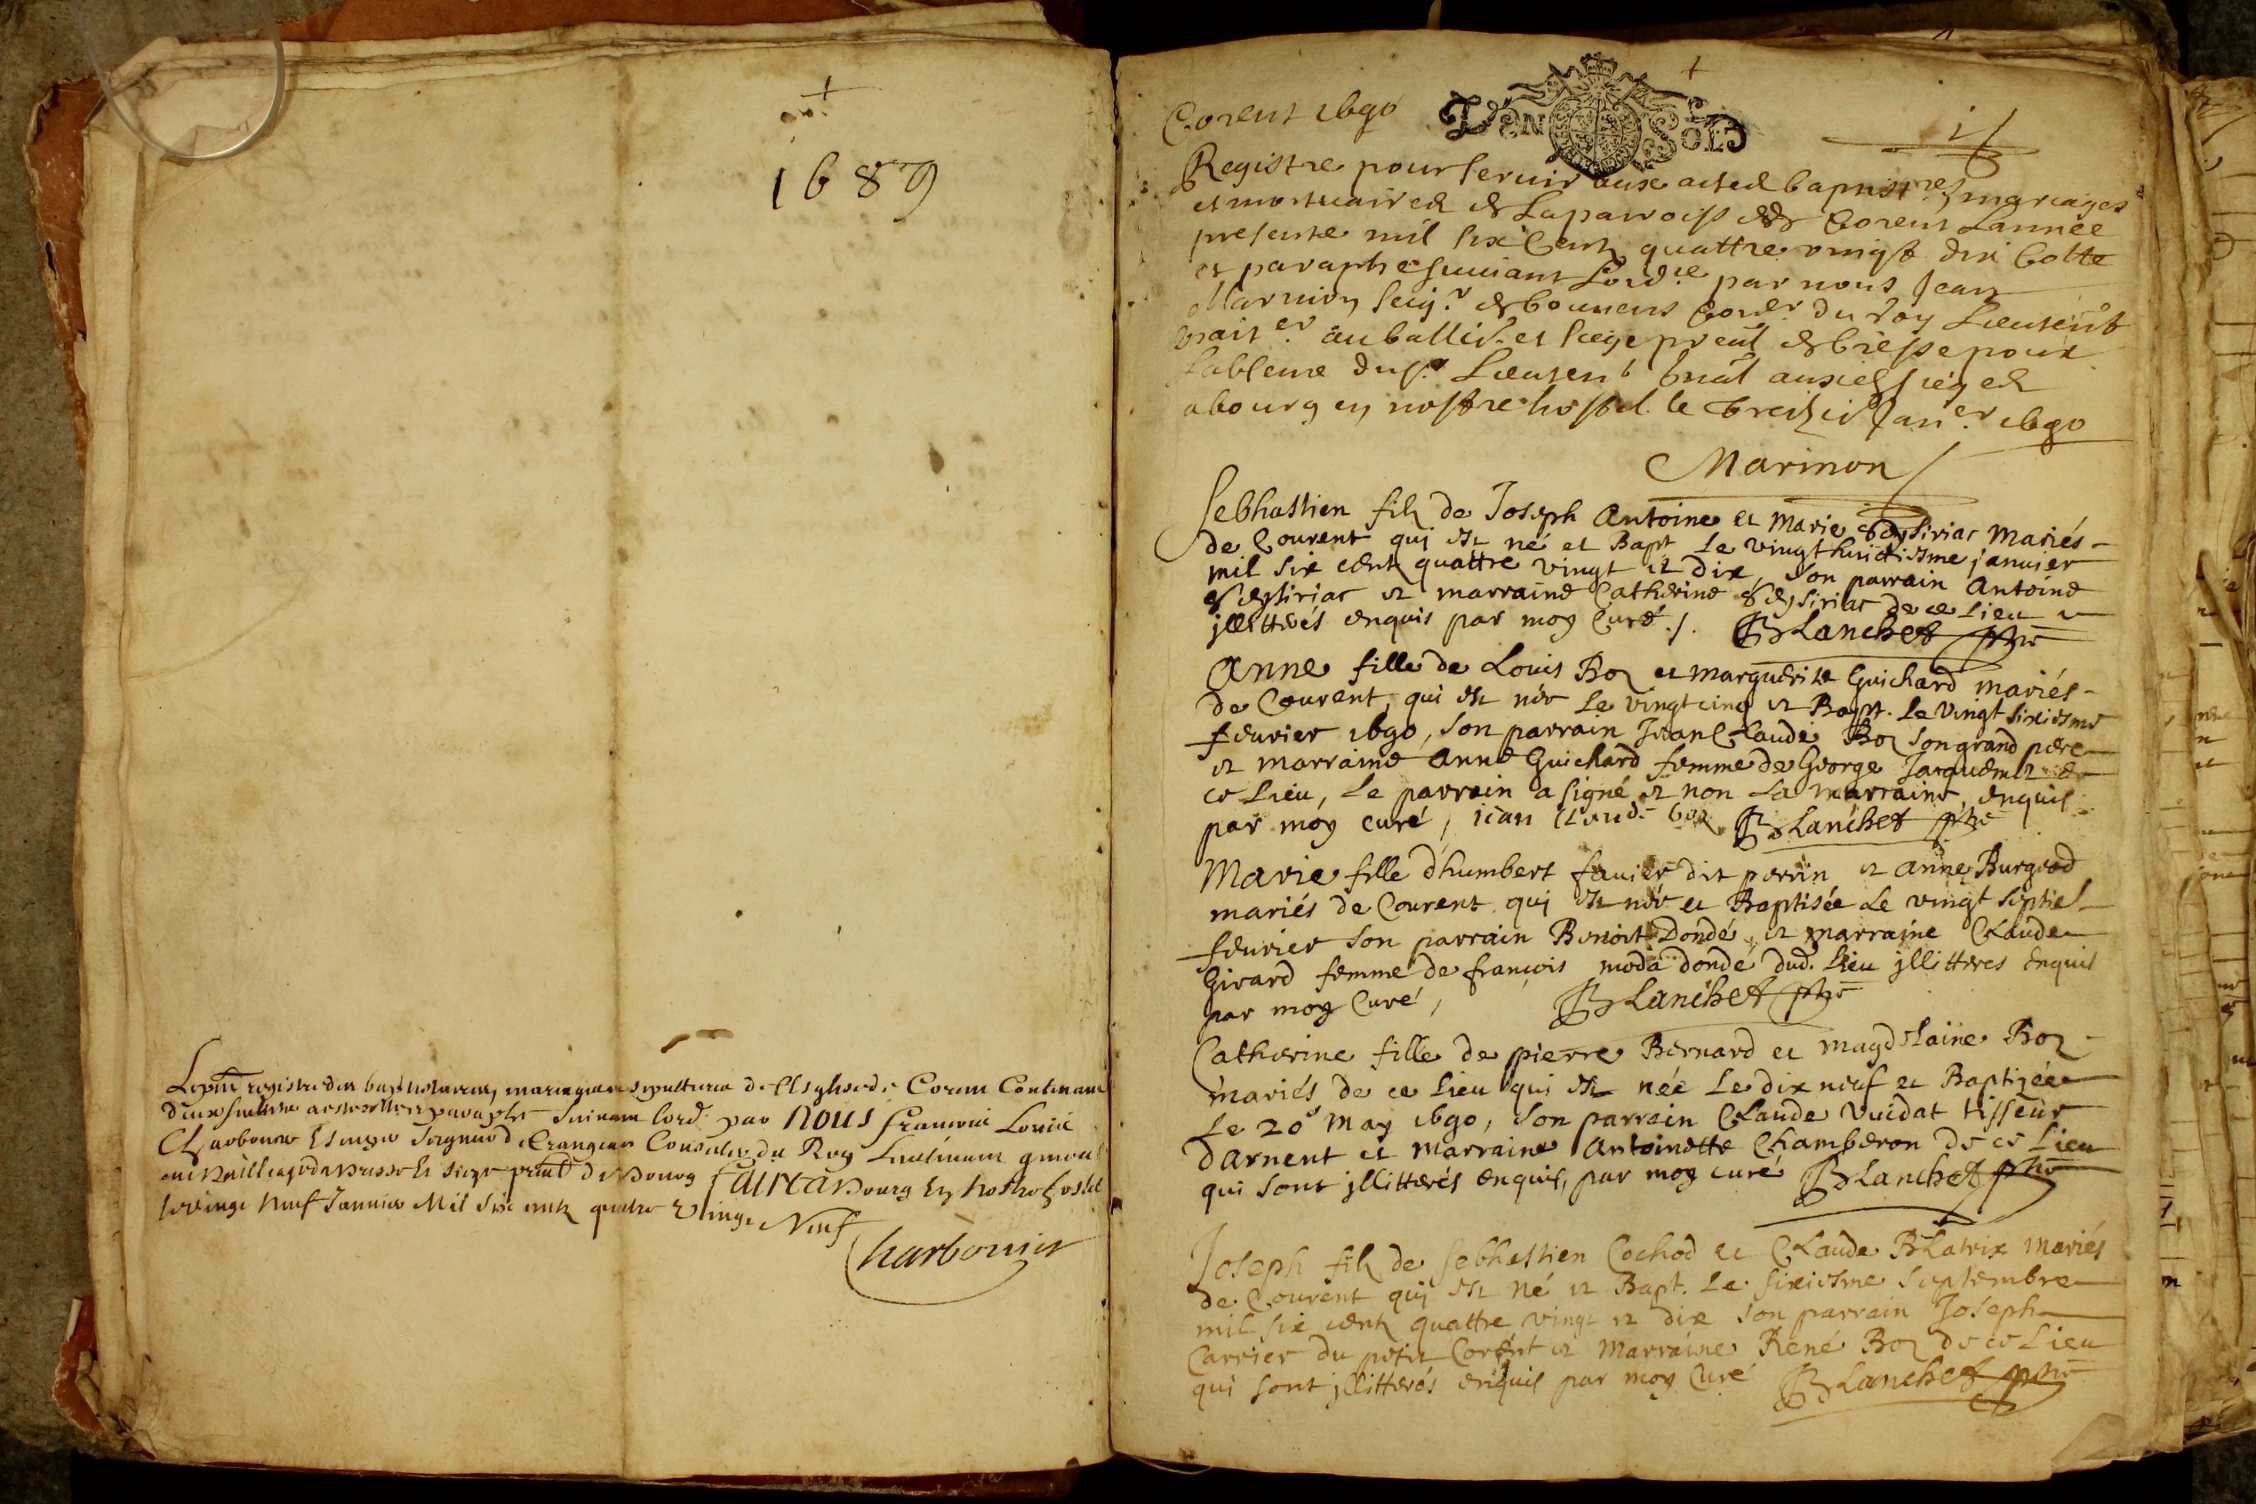 1689
registre des mariages sepultures de Corent Contenant
deux suivant lord. par nous francois Louis
Charbonnier Escuyer Seigneur de Crangeac Conseiller du Roy Lieutenant general
au Bailliage de Bresse et siege p̃nal de Bourg fait a Bourg En nostre hostel
le vingt neuf Janvier Mil Six cents quatre Vingt Neuf
Charbonnier
Corent 1690
DEN SOLS
Registre pour servir aux actes baptist.res mariages
et mortuaires de la parroisse de Corent Lannée
presente mil six Cents quattre vingt dix Cotte
et paraphe suivant Lord.ce par nous Jean
Marinon seig.r de bouvens Con.er du Roy Lieuten̄t
au balliã. et siege pre.al de bresse pour
labsence du s.r Lieutent gñal auxd. sieges
a bourg en nostre hostel le treizie Jan.er 1690
Marinon
Sebhastien filz de Joseph Antoine et Marie de Siriac Mariés
de Courent qui est né et Bapt. Le vingt huictiesme janvier
mil six cents quattre vingt et dix, son parrain Antoine
et marraine Catherine de ce Lieu
jllitterés enquis par moy Curé./. Blanchet pbre
Anne fille de Louis Boz et marguerite Guichard mariés
de Courent, qui est née Le vingt cinq et Bapt. Le vingt sixiesme
feuvrier 1690, son parrain Jean Claude Boz son grand pere
et marraine Anne Guichard femme de George Jacquemet de
ce Lieu, Le parrain a signé et non La marraine, enquis
par moy curé, jean Claude boz Blanchet pbre
Marie fille dhumbert favier dit perrin et anne Burgod
mariés de Courent qui est née et Baptisée Le vingt septie.
feuvrier son parrain Benoit Dondé, et marraine Claude
Girard femme de françois moda dondé dud. Lieu jllitteres enquis
par moy Curé, Blanchet pbre
Catherine fille de pierre Bernard et magdelaine Boz
mariés de ce Lieu qui est née Le dix neuf et Baptizée
Le 20e May 1690, son parrain Claude Vuidat tisseur
darnent et marraine Antoinette Chamberon de ce Lieu
qui sont jllitterés enquis, par moy curé Blanchet pbre
Joseph filz de Sebhestien Cochod et Claude Blatrix mariés
de Courent qui est né et Bapt. Le sixiesme septembre
mil six cents quattre vingt et dix son parrain Joseph
Carrier du petit Corent et Marraine René Boz de ce Lieu
qui sont jllitterés enquis par moy Curé Blanchet pbre